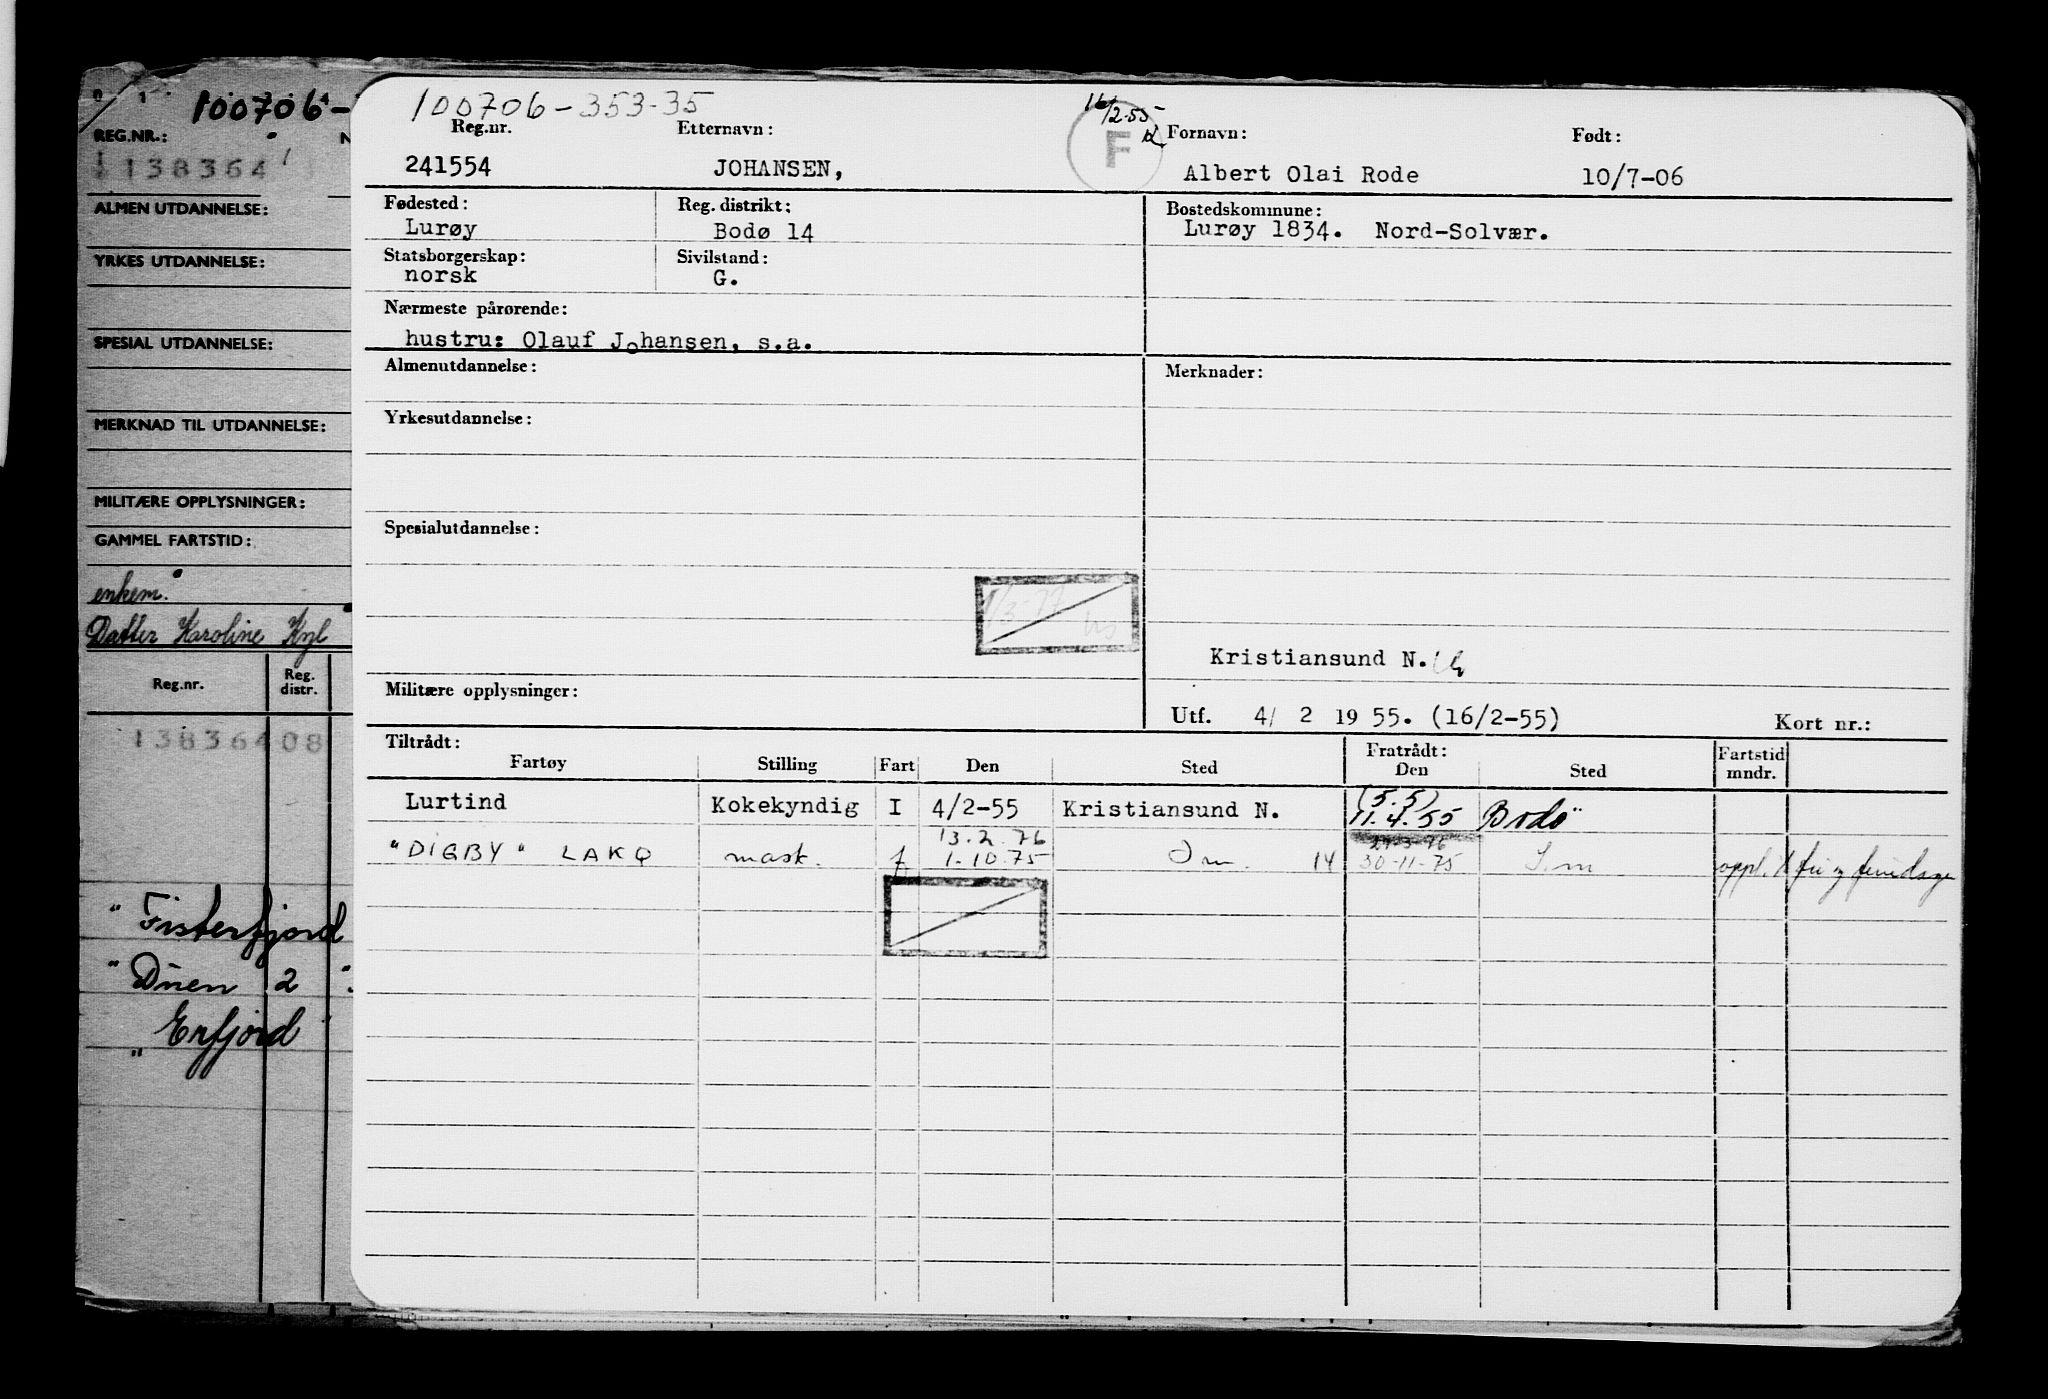 100706-
REG.NR.:
138364
ALMEN UTDANNELSE:
YRKES UTDANNELSE:
SPESIAL UTDANNELSE:
MERKNAD TIL UTDANNELSE:
MILITÆRE OPPLYSNINGER:
GAMMEL FARTSTID:
enkem.
Datter Karoline
Reg.nr. Reg. distr.
138364 08
"Fisterfjord
"Duen 2"
"Erfjord"
100706-353-35
16/2-55
F
Reg.nr. Etternavn: Fornavn: Født:
241554 JOHANSEN, Albert Olai Rode 10/7-06
Fødested: Reg. distrikt: Bostedskommune:
Lurøy Bodø 14 Lurøy 1834. Nord-Solvær.
Statsborgerskap: Sivilstand:
norsk G.
Nærmeste pårørende:
hustru: Olauf Johansen, s.a.
Almenutdannelse: Merknader:
Yrkesutdannelse:
Spesialutdannelse:
1/3-77
Kristiansund N.
Militære opplysninger:
Utf. 4/ 2 19 55. (16/2-55) Kort nr.:
Tiltrådt: Fratrådt: Fartstid
Fartøy Stilling Fart Den Sted Den Sted mndr.
(5.5)
Lurtind Kokekyndig I 4/2-55 Kristiansund N. 11.4.55 Bodö
13.2.76
"DIGBY" LAKQ mask. f 1.10.75 14 30-11-75 oppl.